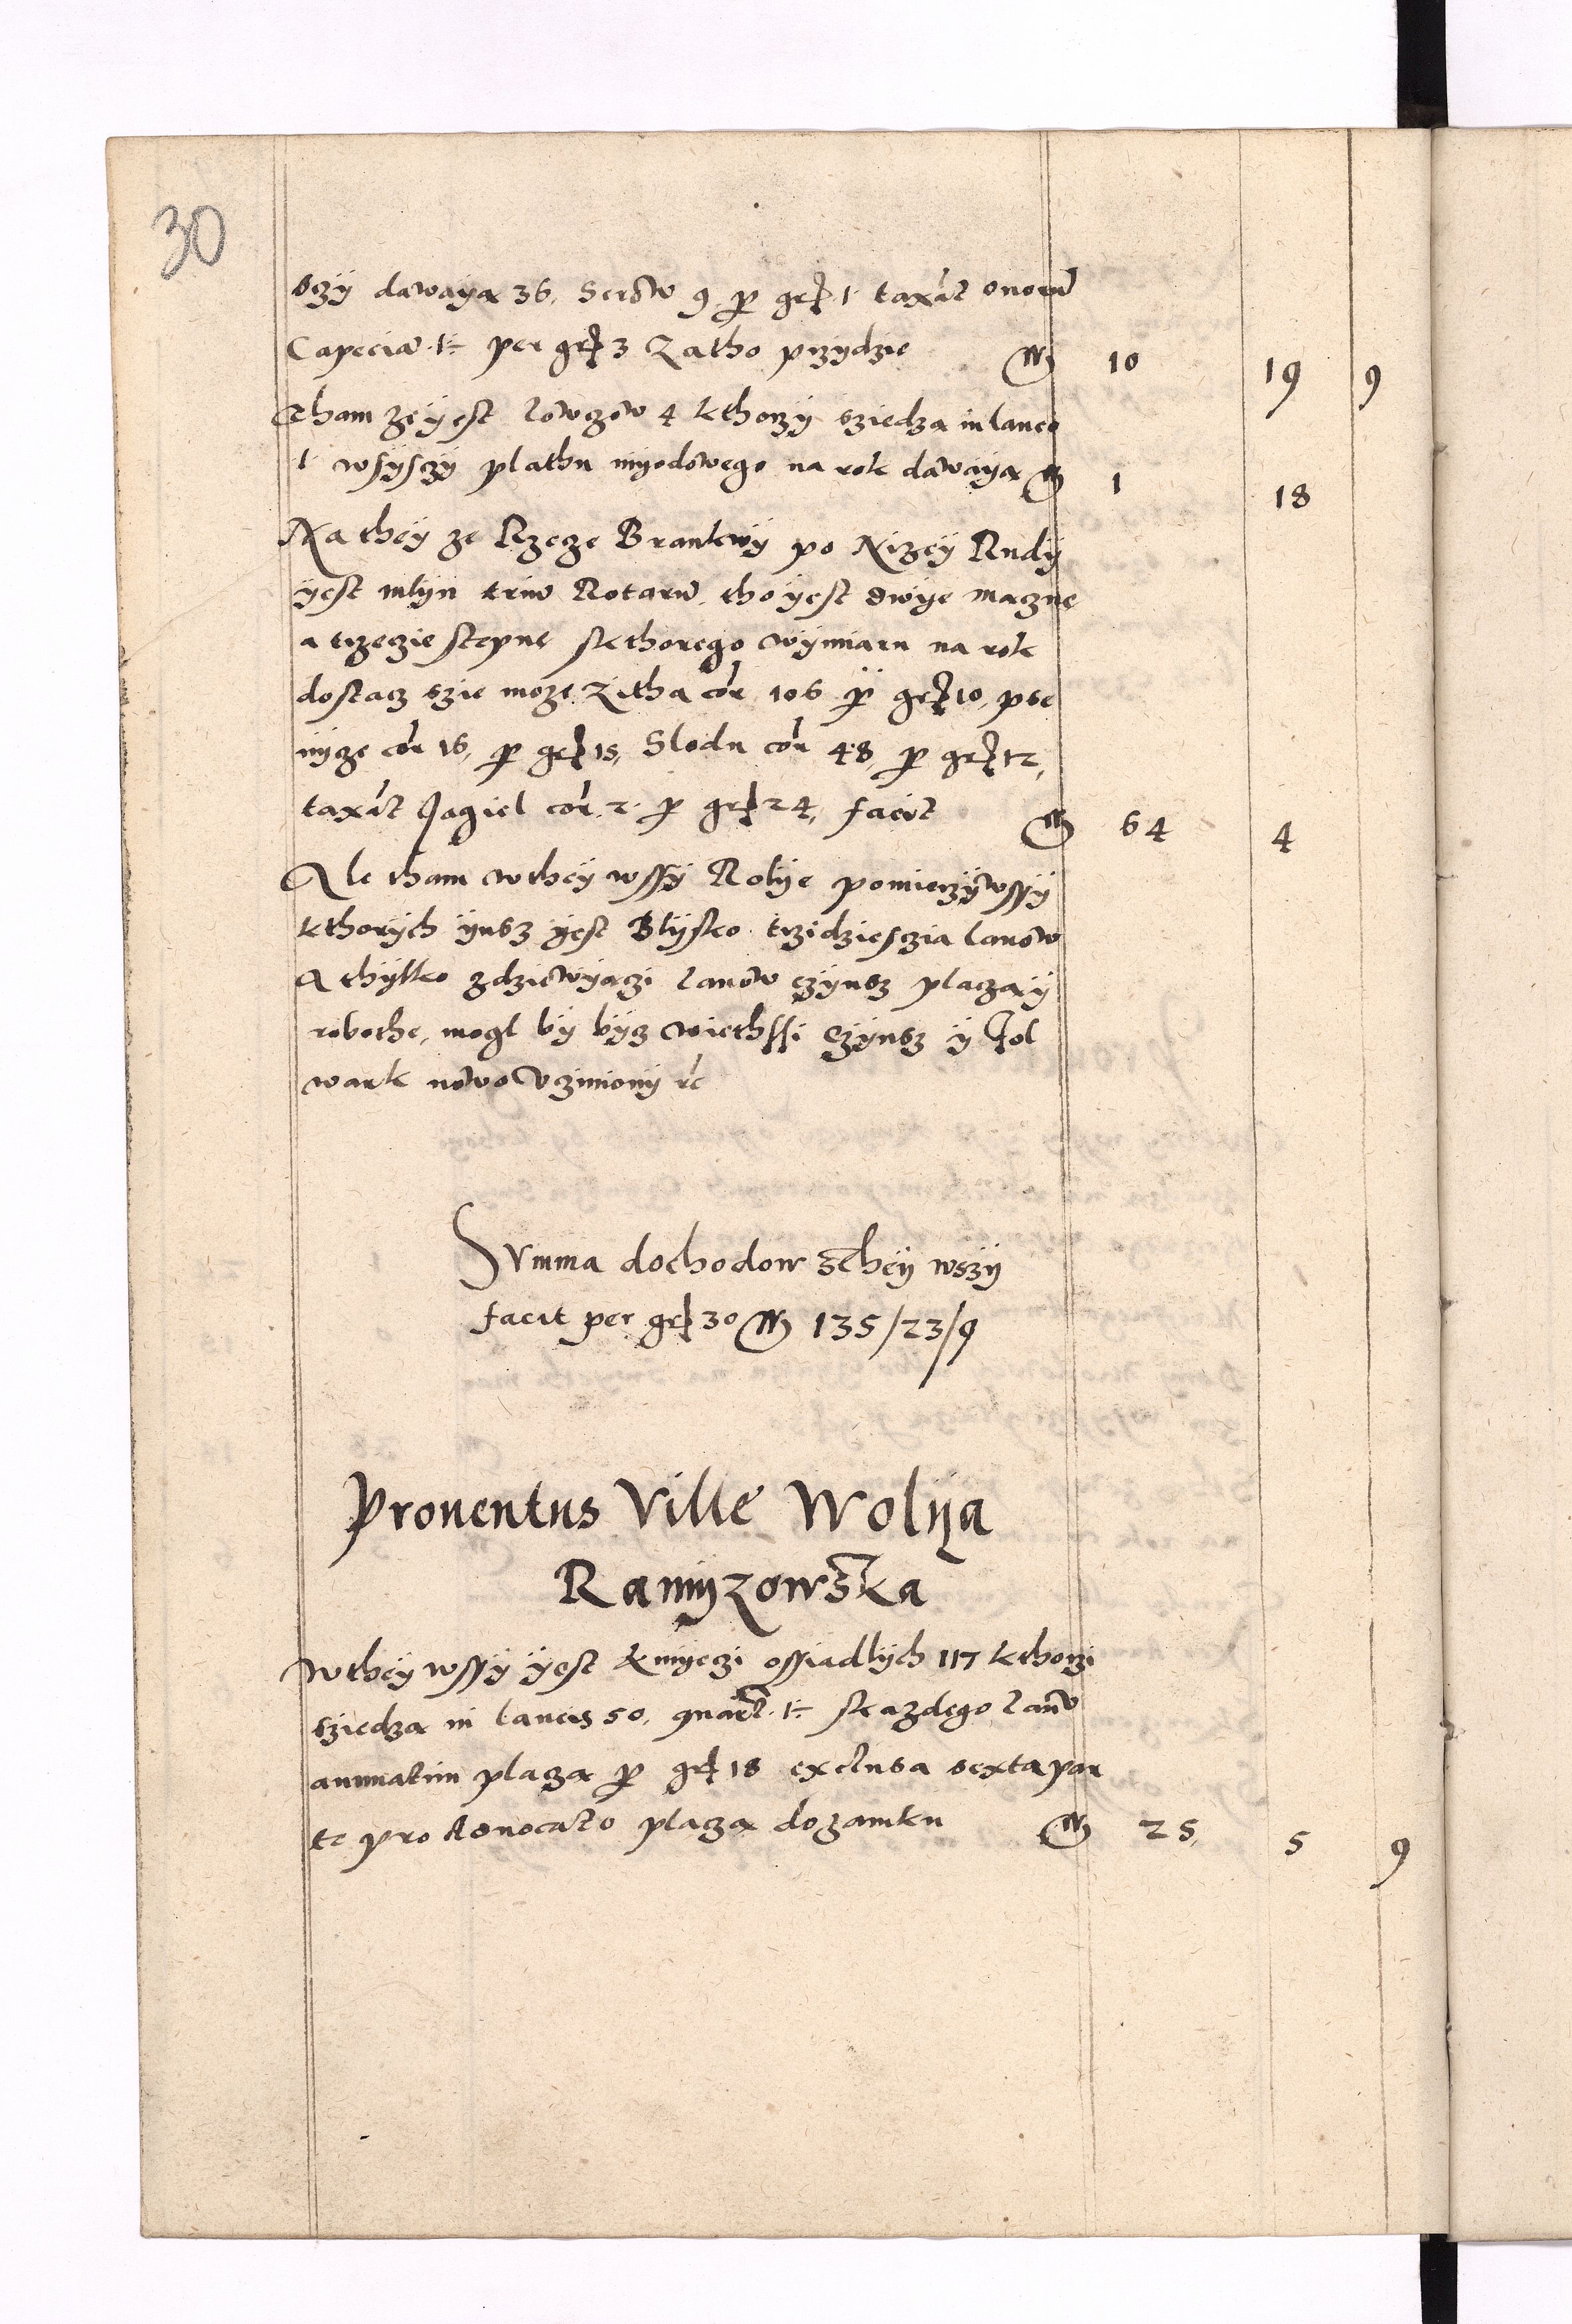 30
szÿ dawaÿa 36, Serow 9 per gr 1 taxat ovorum
Capecia 1½ per gr 3 Zatho przydzie M 10 19 9
Tham zeÿest lowczow 4 kthorzÿ sziedza in laneo
1 wsÿsczÿ plathu mÿodowego na rok dawaÿa M 1 18
Na theÿ ze Rzecze Brankwÿ po Nizeÿ Rudÿ
ÿest mlÿn trium Rotarum, thoÿest dwÿe maczne
a trzeczie stepne skthorego wÿmiaru na rok
dostacz szie moze Zitha cor 106 per gr 10, pse
nÿze cor 16, per gr 15, Slodu cor 48, per gr 12,
taxat Jagiel cor 2 per gr 24, facit M 64 4
Ale tham wtheÿ wssÿ Rolÿe pomierzÿwssÿ
kthorÿch ÿusz ÿest Blÿsko trzidziesczia lanow
A thÿlko zdziewÿaczi lanow czÿnsz placza ÿ
robothe, mogl bÿ bÿcz wiethssi Czÿnsz ÿ Fol
wark nowo Vczinionÿ etc
Summa dochodow stheÿ wszÿ
facit per gr 30 M 135/23/9
Proventus Ville Wolÿa
Ranÿzowska
Wtheÿ wssÿ ÿest kmÿeczi ossiadlÿch 117 kthorzi
sziedza in laneis 50, quart 1½ skazdego lanu
annuatim placza per gr 18 exclusa sexta par
te pro Advocato placza dozamku M 25, 5 9